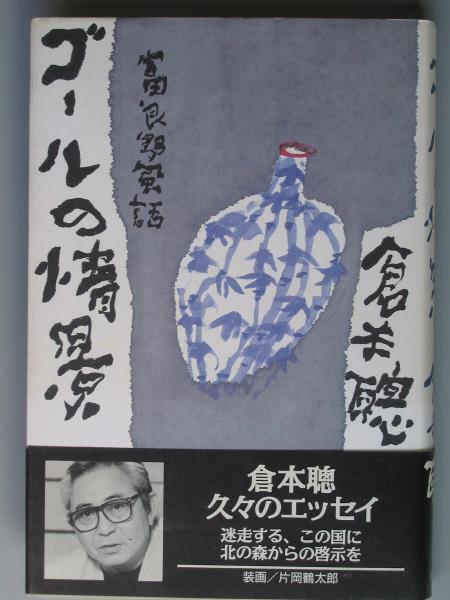 ゴールの情景
富良野風話
倉本聰
倉本聰
久々のエッセイ
迷走する、この国に
北の森からの啓示を
装画／片岡鶴太郎